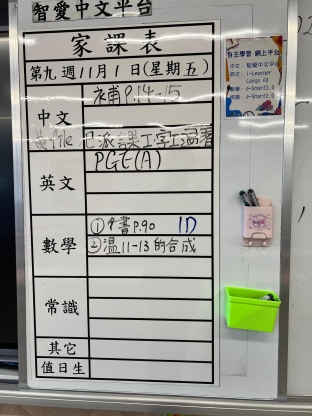 智愛中文平台
家課表
第九週11月1日(星期五)
中文
補P.14-15
已派課工字
英文
PGE(A)
數學
①書P.90 1D
②温11-13的合成
常識
其它
值日生
自主學習 網上平台
中文：智愛中文平台
英文：i-Learner
數學：e-Smart2.0
常識：e-Smart2.0